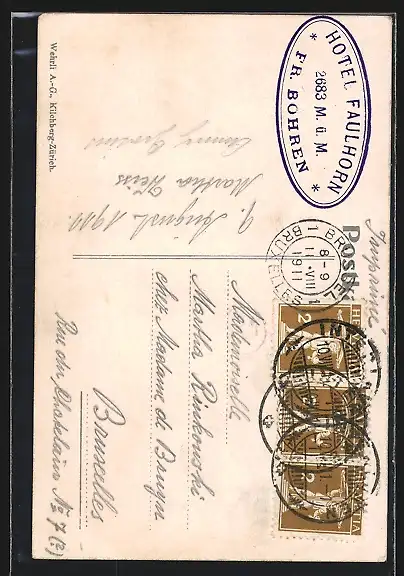 HOTEL FAULHORN
2683 M. ü. M.
* FR. BOHREN *
Postk
Imprimé
1 BRUXELLES 1
8-9
11 VIII
1911
BRUSSEL
HELVETIA
2
2
9. August 1911.
Martha Weiss
Mademoiselle
Martha Rinkowski
chez Madame de Bruyn
Bruxelles
Rue du Chatelain No 7 (?)
Wehrli A.-G., Kilchberg-Zürich.